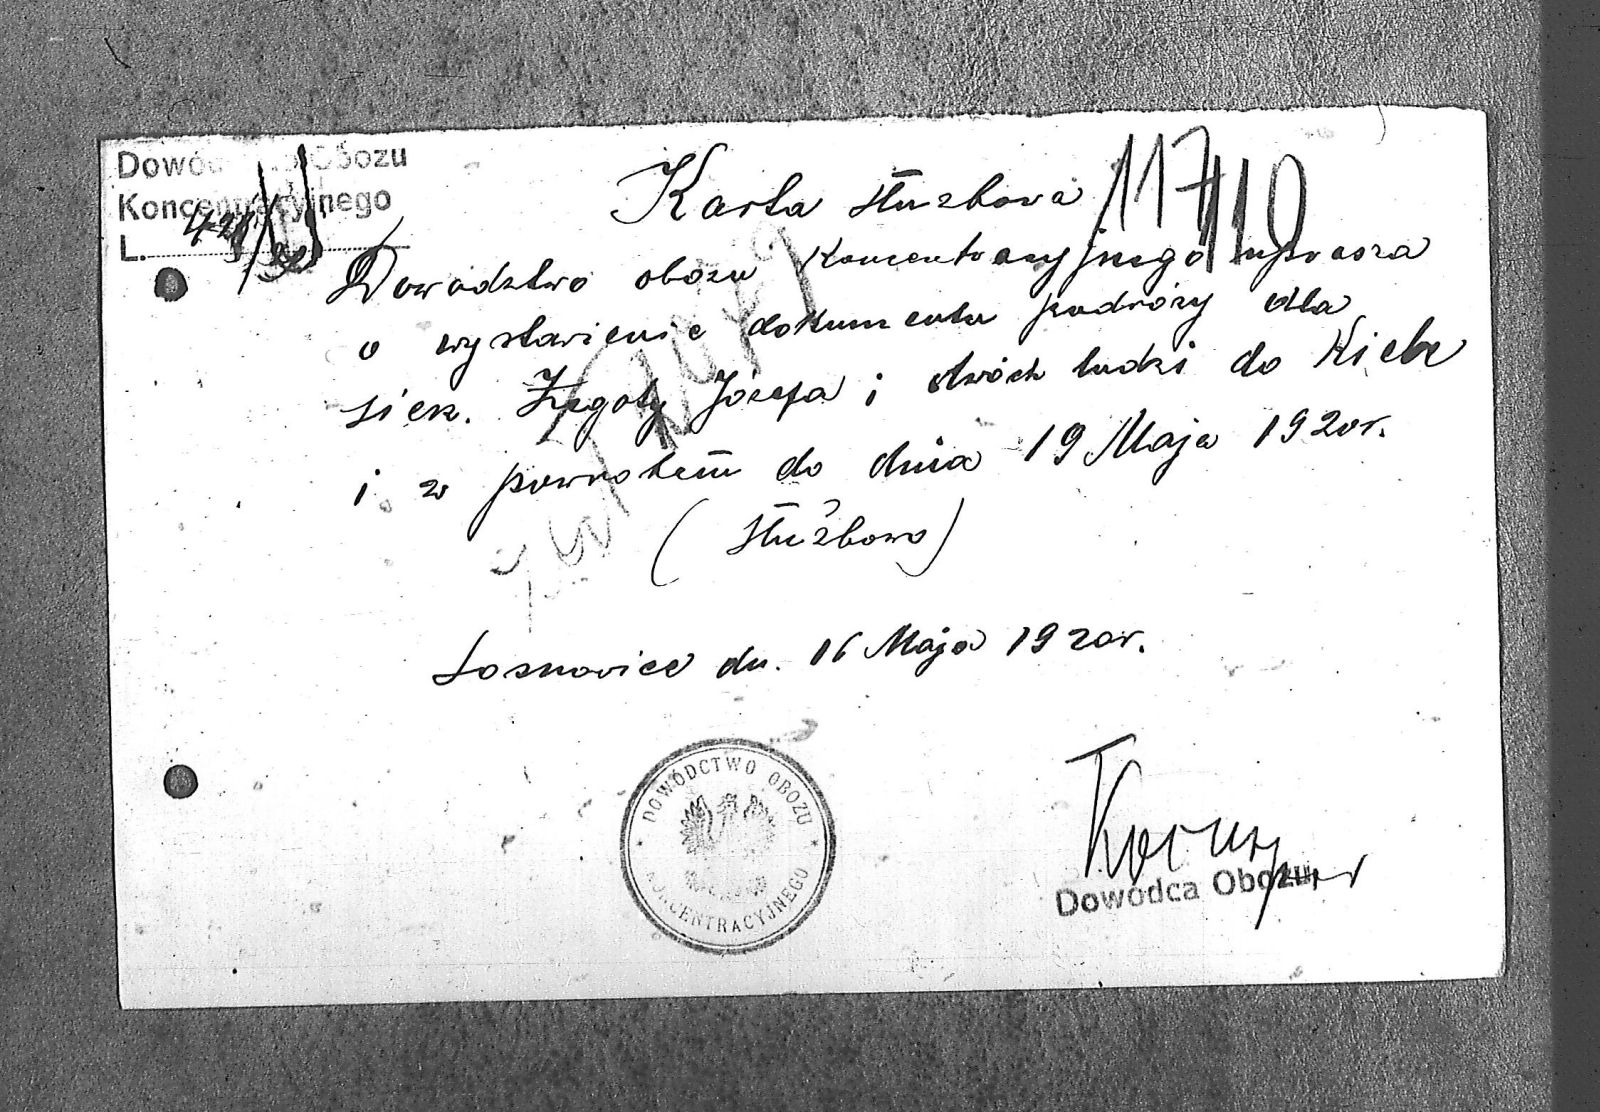 Dowództwo Obozu
Koncentracyjnego
L.
Karta służbowa 117/10
Dowództwo obozu Koncentracyjnego uprasza
o wystawienie dokumentu podróży dla
sierż. Żegoty Józefa i dwóch ludzi do Kielc
i z powrotem do dnia 19 Maja 1920r.
(służbowo)
Sosnowice dn. 16 Maja 1920r.
DOWÓDCTWO OBOZU
KONCENTRACYJNEGO
Dowódca Obozu,